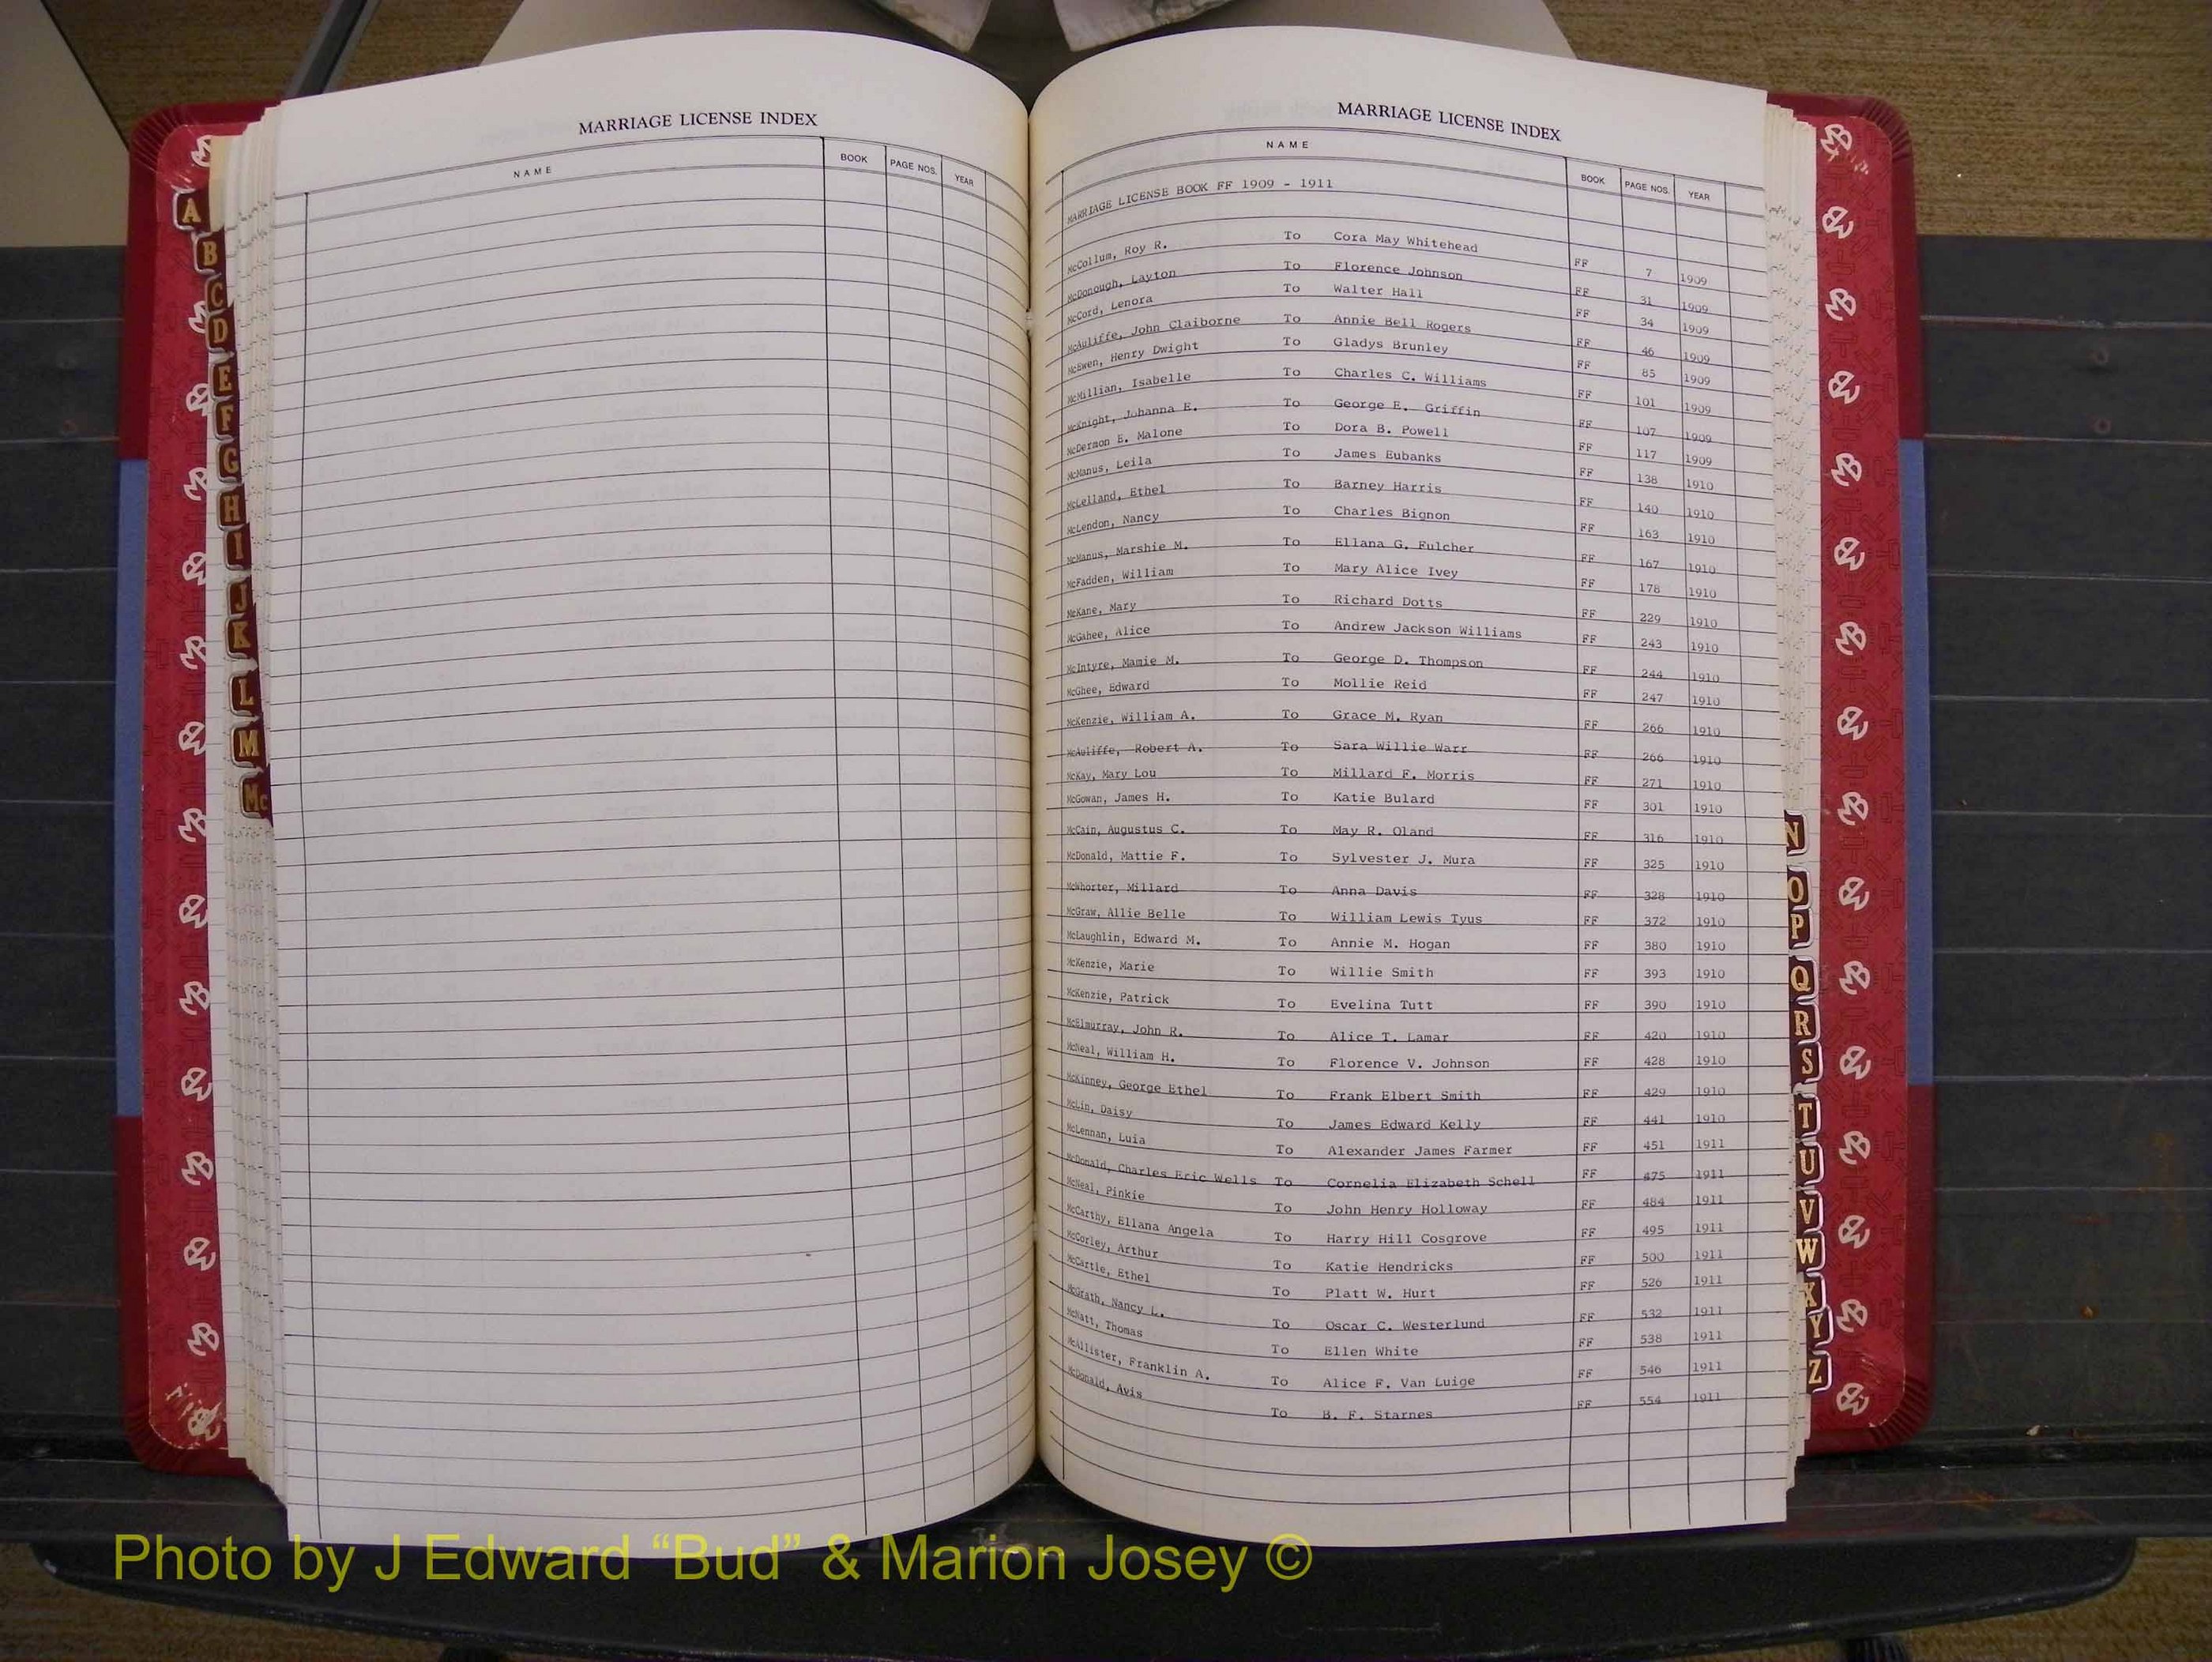 MARRIAGE LICENSE INDEX
NAME BOOK PAGE NOS. YEAR
A
B
C
D
E
F
G
H
I
J
K
L
M
Mc
MARRIAGE LICENSE INDEX
NAME BOOK PAGE NOS. YEAR
MARRIAGE LICENSE BOOK FF 1909 - 1911
McCollum, Roy R. To Cora May Whitehead FF 7 1909
McDonough, Layton To Florence Johnson FF 31 1909
McCord, Lenora To Walter Hall FF 34 1909
McAuliffe, John Claiborne To Annie Bell Rogers FF 46 1909
McEwen, Henry Dwight To Gladys Brunley FF 85 1909
McMillian, Isabelle To Charles C. Williams FF 101 1909
McKnight, Johanna E. To George E. Griffin FF 107 1909
McDermon E. Malone To Dora B. Powell FF 117 1909
McManus, Leila To James Eubanks FF 138 1910
McLelland, Ethel To Barney Harris FF 140 1910
McLendon, Nancy To Charles Bignon FF 163 1910
McManus, Marshie M. To Ellana G. Fulcher FF 167 1910
McFadden, William To Mary Alice Ivey FF 178 1910
McKane, Mary To Richard Dotts FF 229 1910
McGahee, Alice To Andrew Jackson Williams FF 243 1910
McIntyre, Mamie M. To George D. Thompson FF 244 1910
McGhee, Edward To Mollie Reid FF 247 1910
McKenzie, William A. To Grace M. Ryan FF 266 1910
McAuliffe, Robert A. To Sara Willie Warr FF 266 1910
McKay, Mary Lou To Millard F. Morris FF 271 1910
McGowan, James H. To Katie Bulard FF 301 1910
McCain, Augustus C. To May R. Oland FF 316 1910
McDonald, Mattie F. To Sylvester J. Mura FF 325 1910
McWhorter, Millard To Anna Davis FF 328 1910
McGraw, Allie Belle To William Lewis Tyus FF 372 1910
McLaughlin, Edward M. To Annie M. Hogan FF 380 1910
McKenzie, Marie To Willie Smith FF 393 1910
McKenzie, Patrick To Evelina Tutt FF 390 1910
McElmurray, John R. To Alice T. Lamar FF 420 1910
McNeal, William H. To Florence V. Johnson FF 428 1910
McKinney, George Ethel To Frank Elbert Smith FF 429 1910
McLin, Daisy To James Edward Kelly FF 441 1910
McLennan, Luia To Alexander James Farmer FF 451 1911
McDonald, Charles Eric Wells To Cornelia Elizabeth Schell FF 475 1911
McNeal, Pinkie To John Henry Holloway FF 484 1911
McCarthy, Ellana Angela To Harry Hill Cosgrove FF 495 1911
McCorley, Arthur To Katie Hendricks FF 500 1911
McCartle, Ethel To Platt W. Hurt FF 526 1911
McGrath, Nancy L. To Oscar C. Westerlund FF 532 1911
McNatt, Thomas To Ellen White FF 538 1911
McAllister, Franklin A. To Alice F. Van Luige FF 546 1911
McDonald, Avis To B. F. Starnes FF 554 1911
N
O
P
Q
R
S
T
U
V
W
X
Y
Z
Photo by J Edward “Bud” & Marion Josey ©